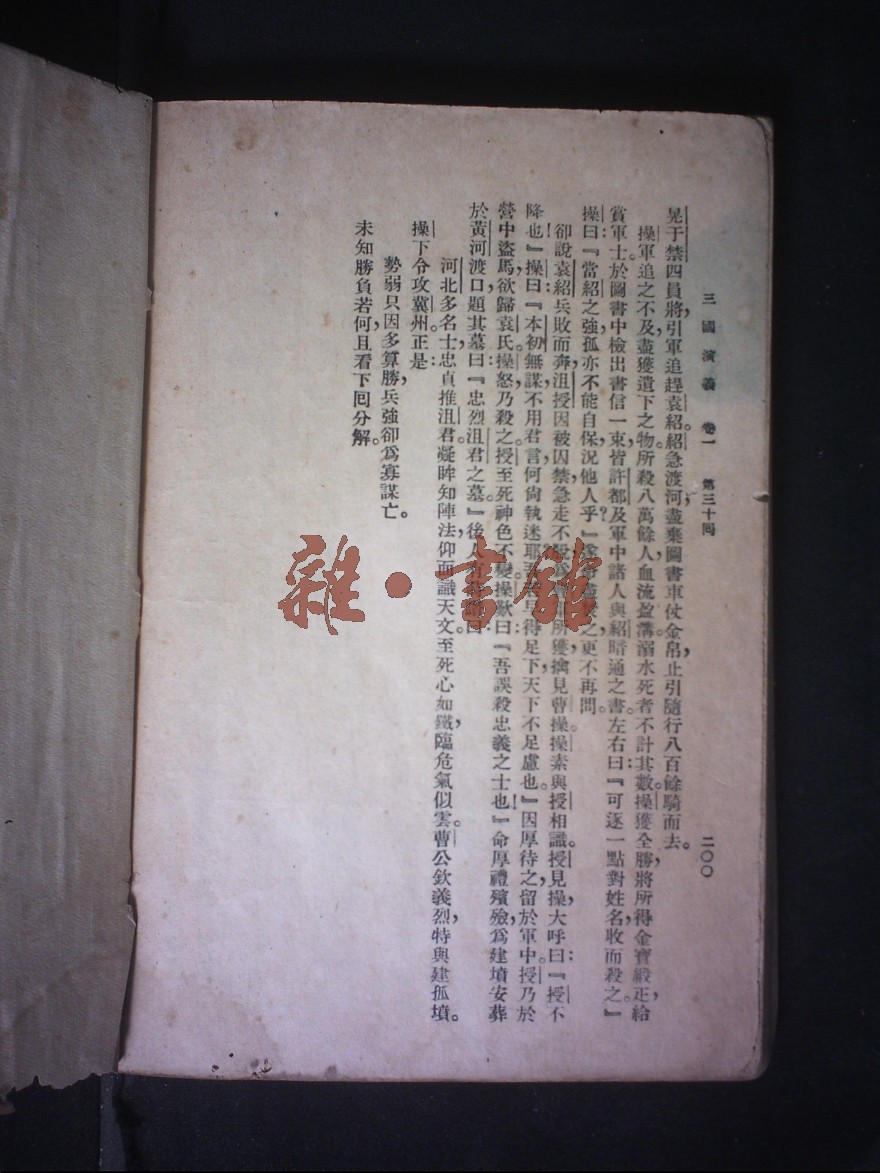 三國演義　卷一　第三十回　二〇〇
晃于禁四員將，引軍追趕袁紹。紹急渡河，盡棄圖書車仗金帛，止引隨行八百餘騎而去。
操軍追之不及，盡獲遺下之物。所殺八萬餘人，血流盈溝，溺水死者不計其數。操獲全勝，將所得金寶緞疋，給
賞軍士。於圖書中檢出書信一束，皆許都及軍中諸人與紹暗通之書。左右曰：『可逐一點對姓名，收而殺之。』
操曰：『當紹之強，孤亦不能自保，況他人乎？』遂命盡焚之，更不再問。
卻說袁紹兵敗而奔，沮授因被囚禁，急走不脫，為曹軍所獲，擒見曹操。操素與授相識。授見操，大呼曰：『授不
降也！』操曰：『本初無謀，不用君言，何尙執迷耶？吾若早得足下，天下不足慮也。』因厚待之，留於軍中。授乃於
營中盜馬，欲歸袁氏。操怒，乃殺之。授至死神色不變。操歎曰：『吾誤殺忠義之士也！』命厚禮殯殮，爲建墳安葬
於黃河渡口，題其墓曰：『忠烈沮君之墓。』後人有詩曰：
河北多名士，忠貞推沮君。凝眸知陣法，仰面識天文。至死心如鐵，臨危氣似雲。曹公欽義烈，特與建孤墳。
操下令攻冀州。正是：
勢弱只因多算勝，兵強卻爲寡謀亡。
未知勝負若何，且看下回分解。
雜·書館